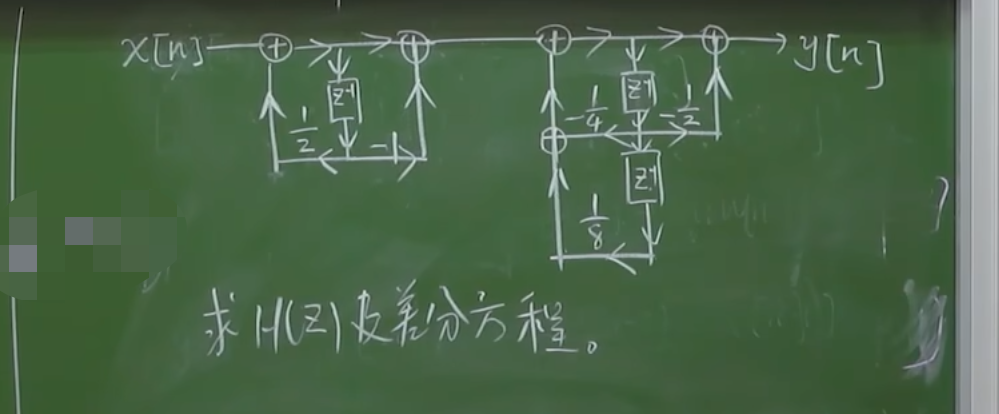 x[n] + + + + y[n]
z⁻¹ z⁻¹
1/2 -1 -1/4 -1/2
+
z⁻¹
1/8
求H(z)及差分方程。